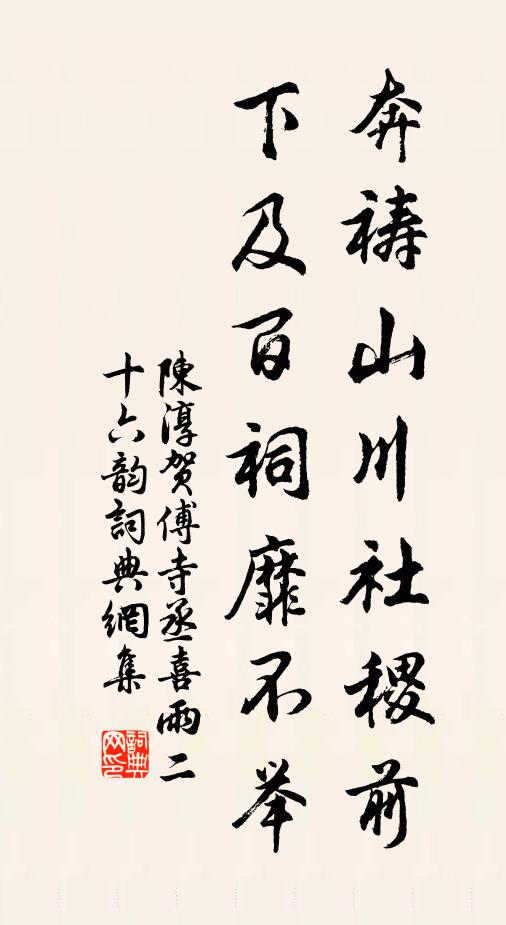 奔祷山川社稷前
下及百祠靡不举
陳淳贺傅寺丞喜雨二
十六韵詞典網集
詞典网印